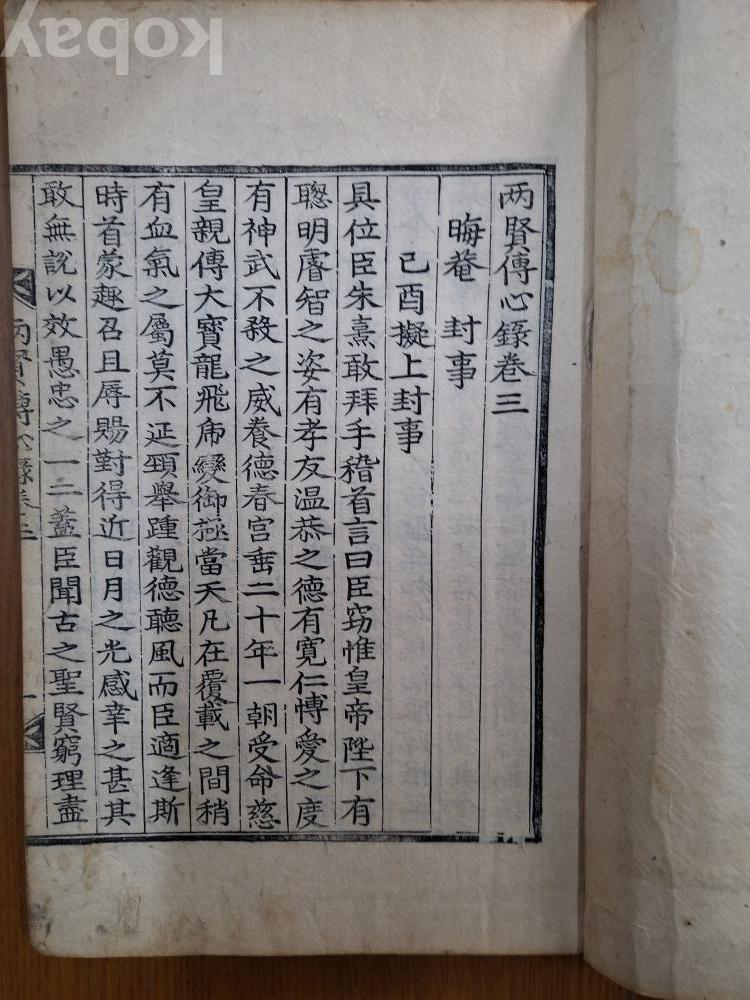 兩賢傳心錄卷三
晦菴 封事
己酉擬上封事
具位臣朱熹敢拜手稽首言曰臣竊惟皇帝陛下有
聰明睿智之姿有孝友温恭之德有寛仁愽愛之度
有神武不殺之威養德春宮垂二十年一朝受命慈
皇親傳大寳龍飛虎變御極當天凡在覆載之間稍
有血氣之屬莫不延頸舉踵觀德聽風而臣適逢斯
時首蒙趣召且辱賜對得近日月之光感幸之甚其
敢無説以效愚忠之一二蓋臣聞古之聖賢窮理盡
兩賢傳心錄卷三
一
kobay